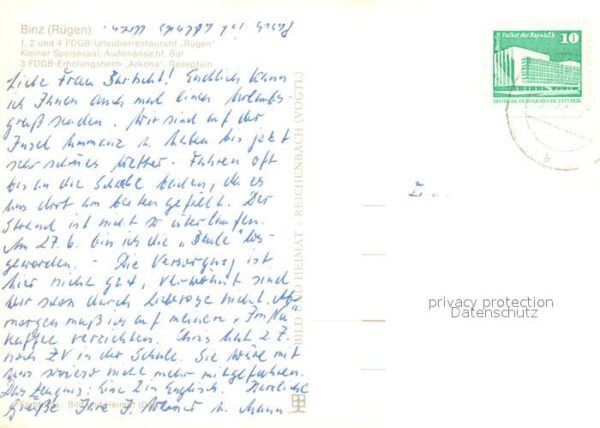 Binz (Rügen)
1, 2 und 4 FDGB-Urlauberrestaurant "Rügen"
Kleiner Speisesaal, Außenansicht, Bar
3 FDGB-Erholungsheim "Arkona", Rezeption
Liebe Frau! Endlich kann
ich Ihnen auch mal einen Urlaubs-
gruß senden. Wir sind auf der
Insel Ummanz u. haben bis jetzt
sehr schönes Wetter. Fahren oft
bis an die Schaabe baden, da es
uns dort am besten gefällt. Der
Strand ist nicht so überlaufen.
Am 27.6. bin ich die "Beule" los-
geworden. - Die Versorgung ist
hier nicht gut, verwöhnt sind
wir schon durch nicht. Ab
morgen muß ich auf meinen
Kaffee verzichten. Chris hat z. Z.
noch ZV in der Schule. Sie wäre mit
uns sowieso nicht mehr mitgefahren.
Ihr Zeugnis: Eine 2 in Englisch. Herzliche
Grüße Ihre J. u. Mann.
BILD UND HEIMAT REICHENBACH (VOGTL)
Berlin Palast der Republik
10
DEUTSCHE DEMOKRATISCHE REPUBLIK
privacy protection
Datenschutz
Bild und Heimat